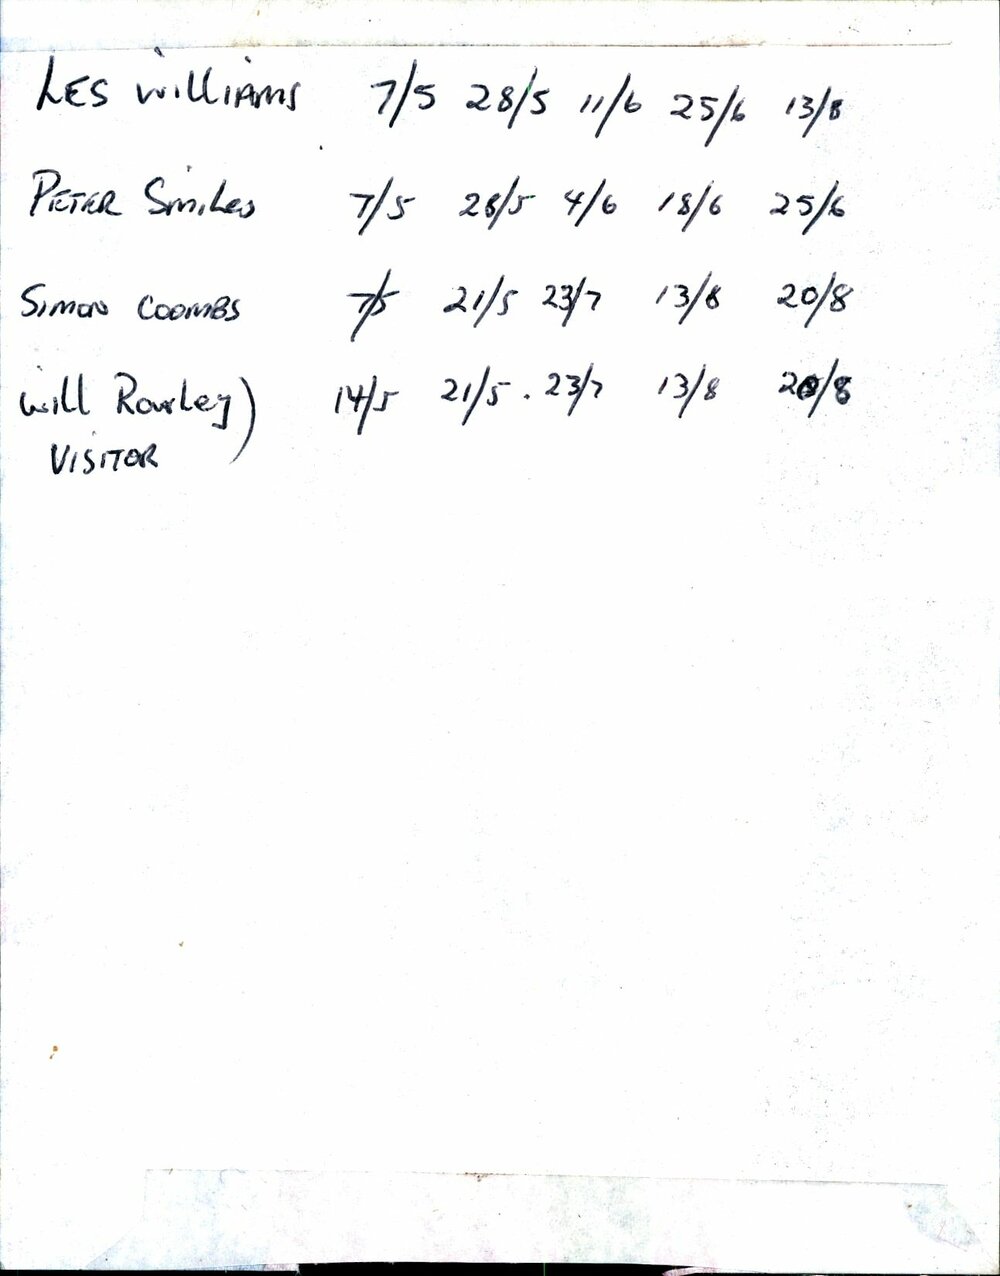 LES WilliAMS 7/5 28/5 11/6 25/6 13/8
PETER Smiles 7/5 28/5 4/6 18/6 25/6
Simon COOMBS 7/5 21/5 23/7 13/8 20/8
Will Rowley) 14/5 21/5 . 23/7 13/8 20/8
VISITOR